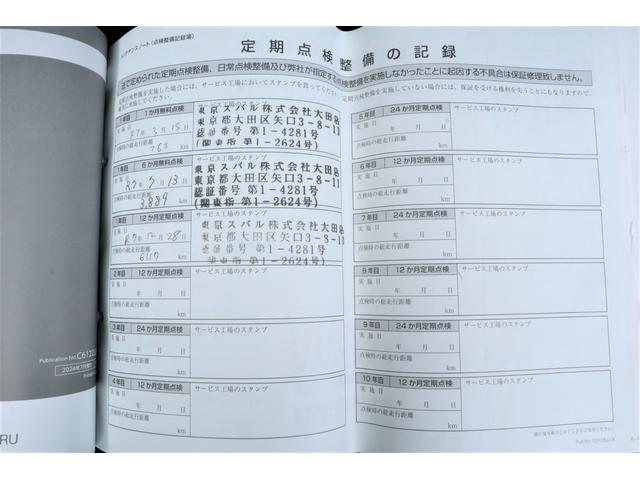 メンテナンスノート(点検整備記録簿)
定期点検整備の記録
法で定められた定期点検整備、日常点検整備及び弊社が指定する点検整備を実施しなかったことに起因する不具合は保証修理致しません。
定期点検整備を実施した場合は、サービス工場においてスタンプを買ってください。定期点検整備を実施していない場合には、保証を受ける権利を失うことにもなりますので、
確実に実施してください。
1か月無料点検
実施日 R7年3月15日
点検時の総走行距離
765 km
東京スバル株式会社大田店
東京都大田区矢口3-8-11
認証番号 第1-4281号
(関東指 第1-2624号)
1年目 6か月無料点検
サービス工場のスタンプ
点検時の総走行距離
3,889 km
東京スバル株式会社大田店
東京都大田区矢口3-8-11
認証番号 第1-4281号
(関東指 第1-2624号)
1年目 12か月定期点検
サービス工場のスタンプ
実施日 R7年12月28日
点検時の総走行距離
6117 km
東京スバル株式会社大田店
東京都大田区矢口3-8-11
認証番号 第1-4281号
(関東指 第1-2624号)
2年目 12か月定期点検 サービス工場のスタンプ
実施日 年 月 日
点検時の総走行距離
km
3年目 24か月定期点検 サービス工場のスタンプ
実施日 年 月 日
点検時の総走行距離
km
4年目 12か月定期点検 サービス工場のスタンプ
実施日 年 月 日
点検時の総走行距離
km
5年目 24か月定期点検 サービス工場のスタンプ
実施日 年 月 日
点検時の総走行距離
km
6年目 12か月定期点検 サービス工場のスタンプ
実施日 年 月 日
点検時の総走行距離
km
7年目 24か月定期点検 サービス工場のスタンプ
実施日 年 月 日
点検時の総走行距離
km
8年目 12か月定期点検 サービス工場のスタンプ
実施日 年 月 日
点検時の総走行距離
km
9年目 24か月定期点検 サービス工場のスタンプ
実施日 年 月 日
点検時の総走行距離
km
10年目 12か月定期点検 サービス工場のスタンプ
実施日 年 月 日
点検時の総走行距離
km
Publication No.
2024年7月発行
RU